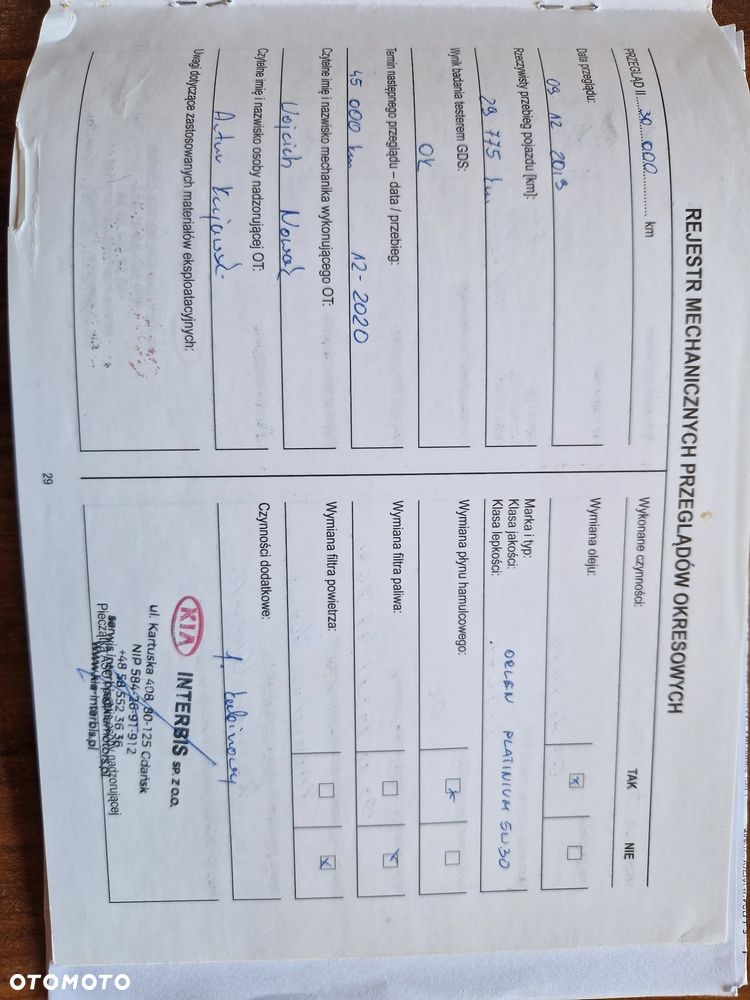 REJESTR MECHANICZNYCH PRZEGLĄDÓW OKRESOWYCH
PRZEGLĄD II ..... 30 000 ............... km
Data przeglądu:
09 12 2019
Rzeczywisty przebieg pojazdu [km]:
29 775 km
Wynik badania testerem GDS:
OK
Termin następnego przeglądu – data / przebieg:
45 000 km 12-2020
Czytelne imię i nazwisko mechanika wykonującego OT:
Wojciech Nowak
Czytelne imię i nazwisko osoby nadzorującej OT:
Artur
Uwagi dotyczące zastosowanych materiałów eksploatacyjnych:
Wykonane czynności: TAK NIE
Wymiana oleju: x
Marka i typ:
Klasa jakości:
Klasa lepkości:
ORLEN PLATINIUM 5W30
Wymiana płynu hamulcowego: x
Wymiana filtra paliwa: x
Wymiana filtra powietrza: x
Czynności dodatkowe:
f. kabinowy
KIA INTERBIS SP. Z O.O.
ul. Kartuska 408, 80-125 Gdańsk
NIP 584-26-91-912
+48 58 552 36 36
www.kia-interbis.pl
29
OTOMOTO